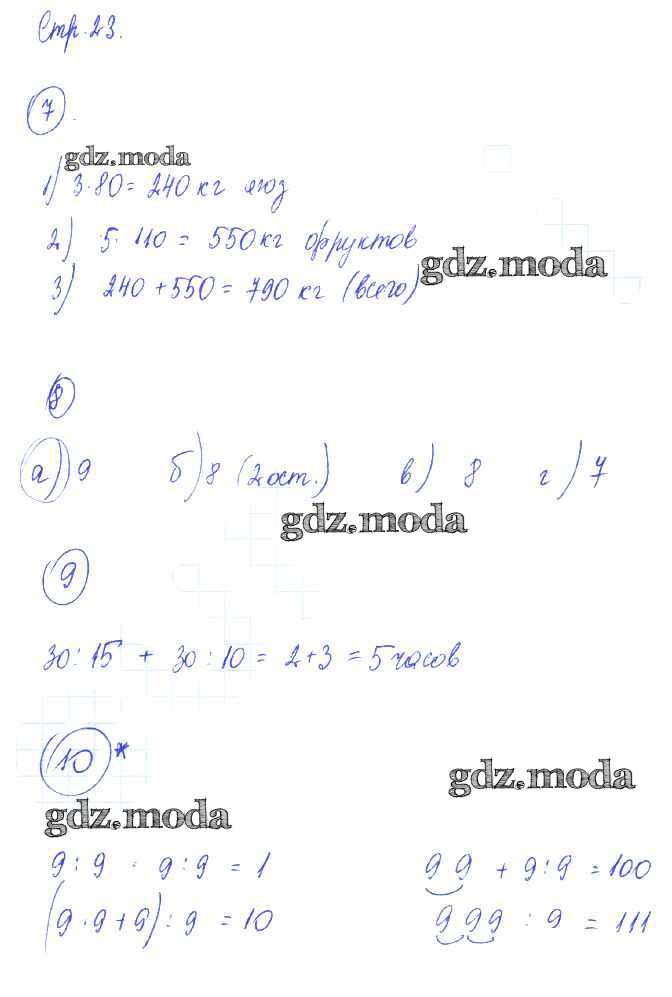 Стр. 23.
7.
gdz.moda
1) 3·80 = 240 кг ягод
2) 5·110 = 550 кг фруктов
gdz.moda
3) 240 + 550 = 790 кг (всего)
8
а) 9 б) 8 (2 ост.) в) 8 г) 7
gdz.moda
9
30 : 15 + 30 : 10 = 2 + 3 = 5 часов
10*
gdz.moda
gdz.moda
9 : 9 · 9 : 9 = 1 99 + 9 : 9 = 100
(9 · 9 + 9) : 9 = 10 999 : 9 = 111